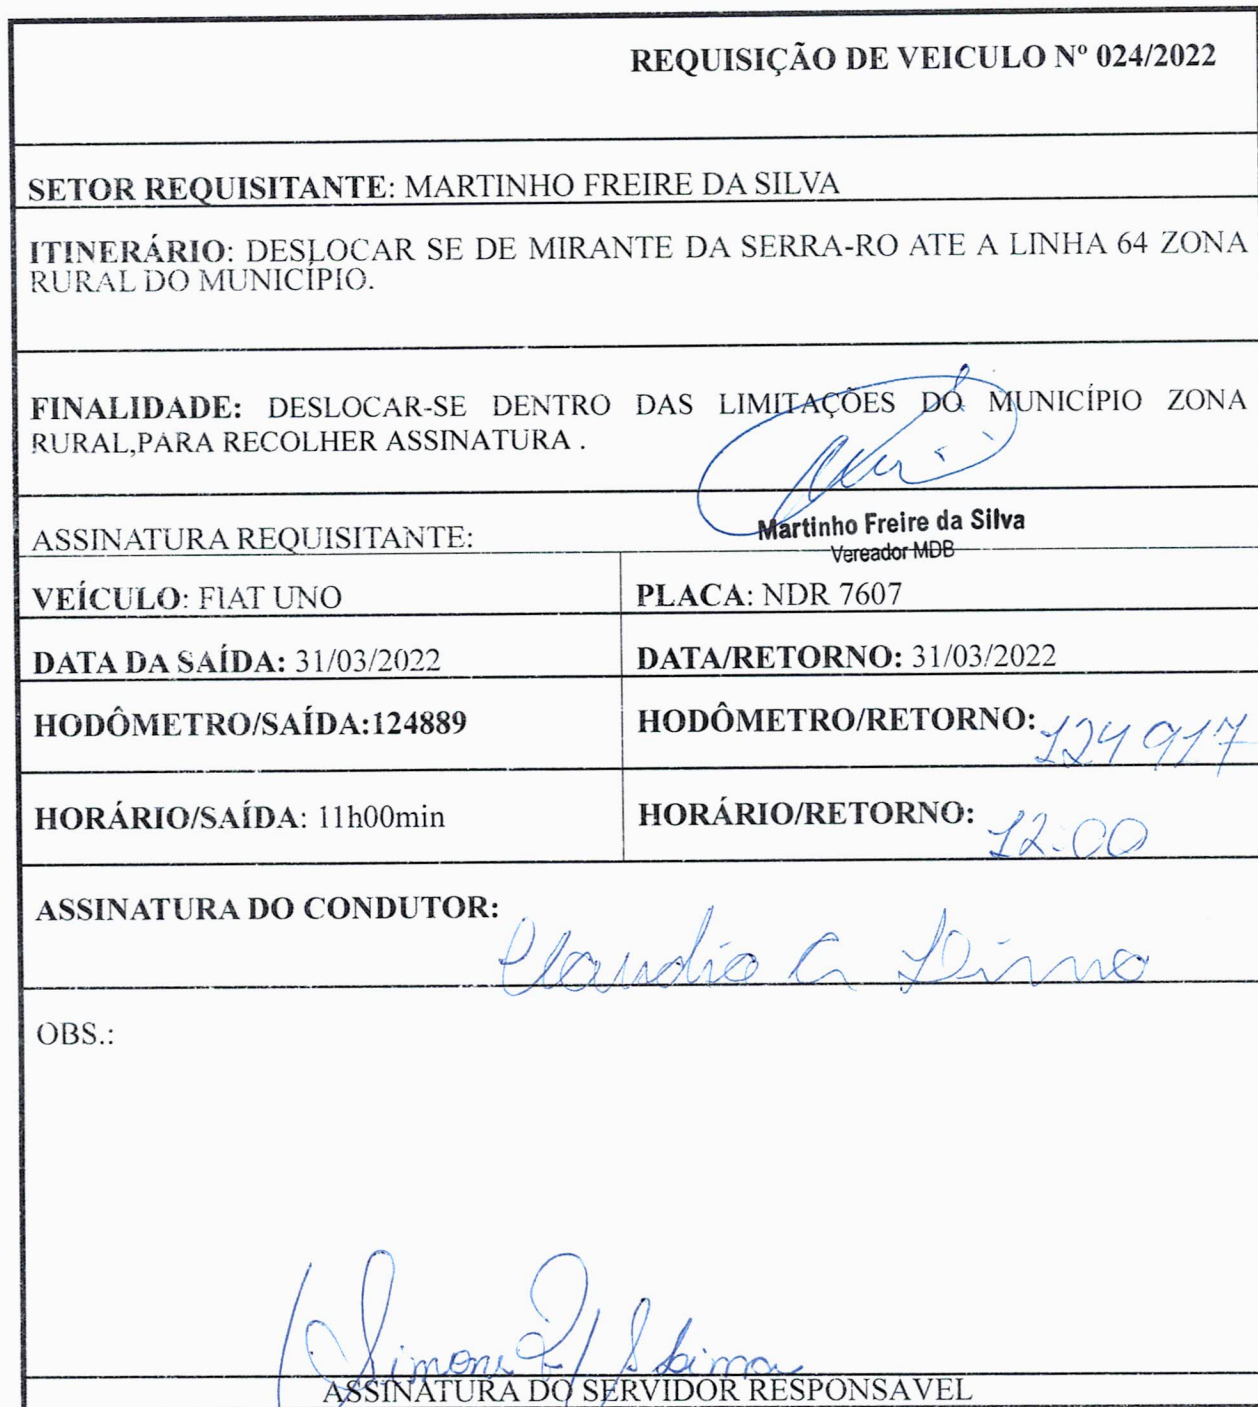 REQUISIÇÃO DE VEICULO Nº 024/2022
SETOR REQUISITANTE: MARTINHO FREIRE DA SILVA
ITINERÁRIO: DESLOCAR SE DE MIRANTE DA SERRA-RO ATE A LINHA 64 ZONA
RURAL DO MUNICÍPIO.
FINALIDADE: DESLOCAR-SE DENTRO DAS LIMITAÇÕES DO MUNICÍPIO ZONA
RURAL,PARA RECOLHER ASSINATURA .
ASSINATURA REQUISITANTE:
Martinho Freire da Silva
Vereador MDB
VEÍCULO: FIAT UNO
PLACA: NDR 7607
DATA DA SAÍDA: 31/03/2022
DATA/RETORNO: 31/03/2022
HODÔMETRO/SAÍDA:124889
HODÔMETRO/RETORNO: 124917
HORÁRIO/SAÍDA: 11h00min
HORÁRIO/RETORNO: 12:00
ASSINATURA DO CONDUTOR: Claudio
OBS.:
Simone
ASSINATURA DO SERVIDOR RESPONSAVEL